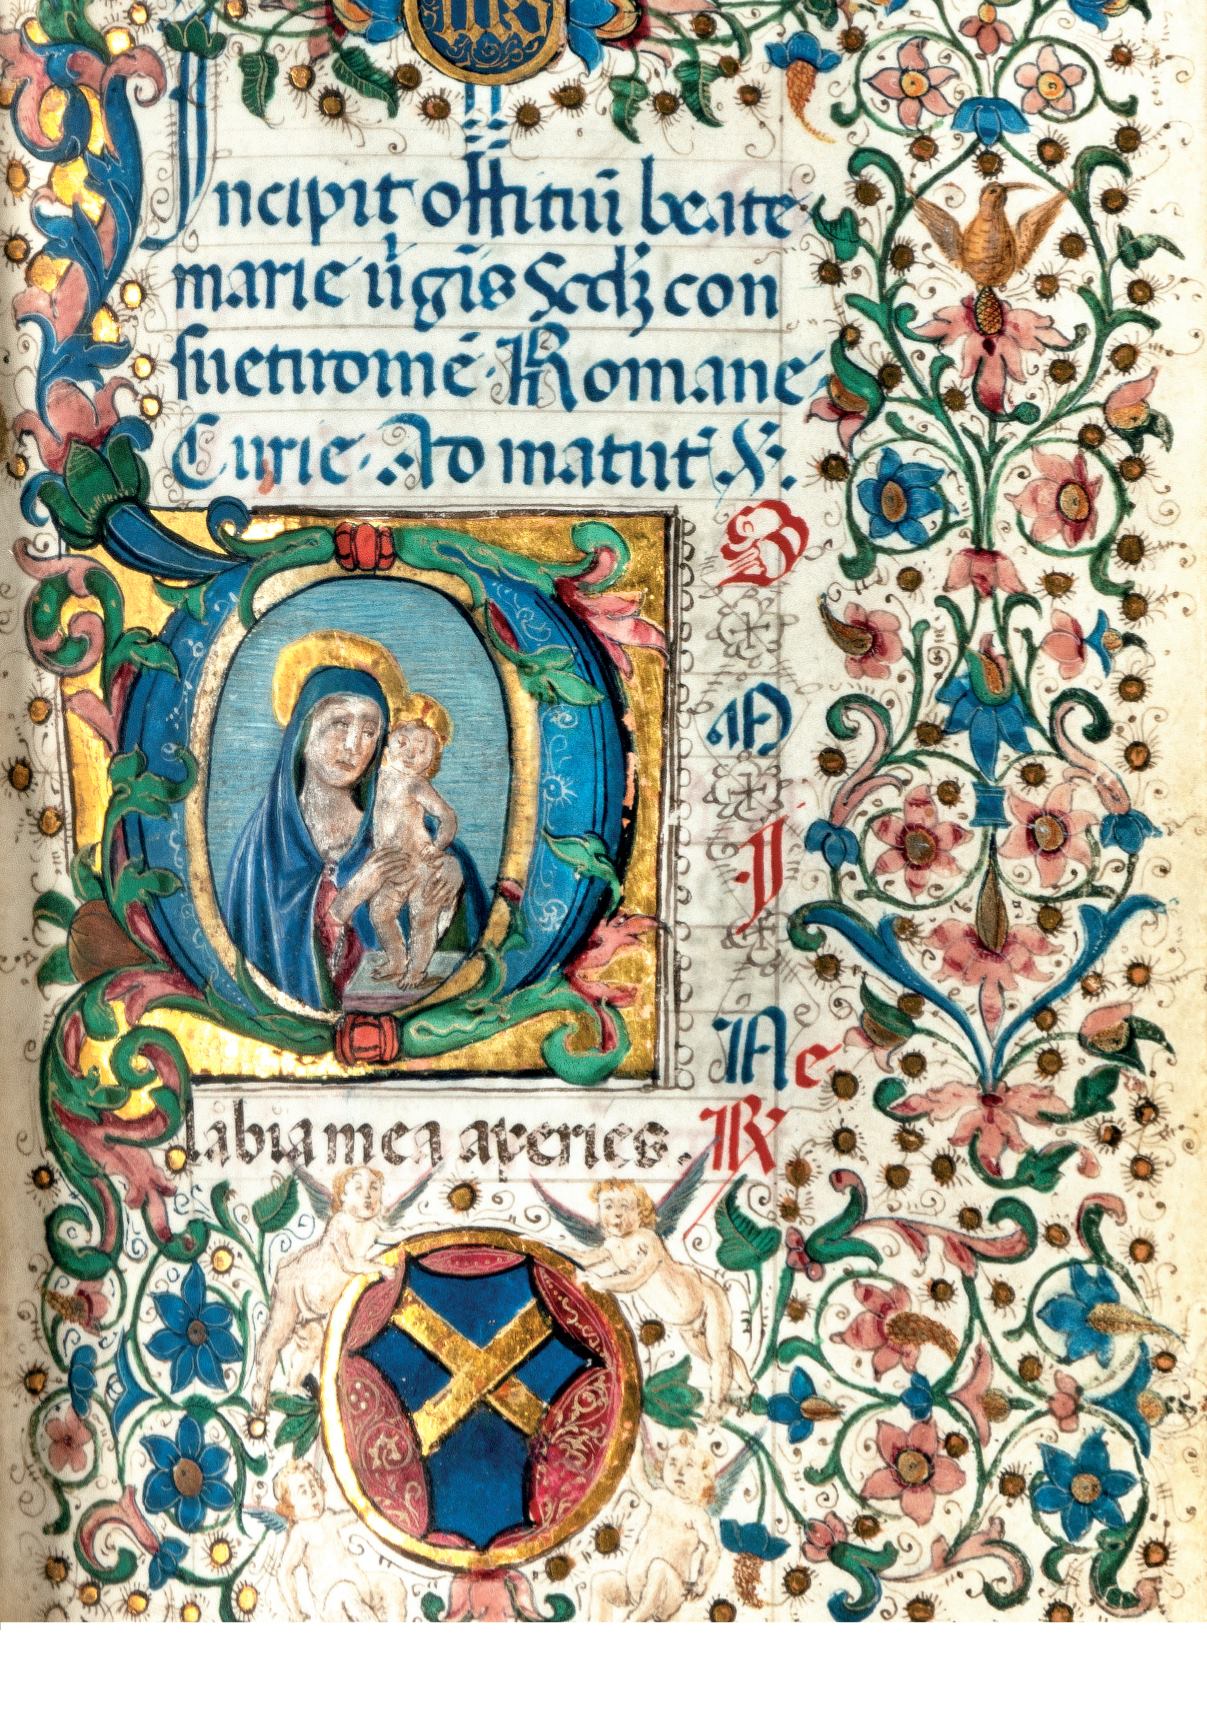 yhs
Incipit offitiū beate
marie ṽgĩs Scdꝫ con
suetudinē Romane
Curie. Ad matut̄. ℣.
D
O
M
I
N e
labia mea aperies. ℟